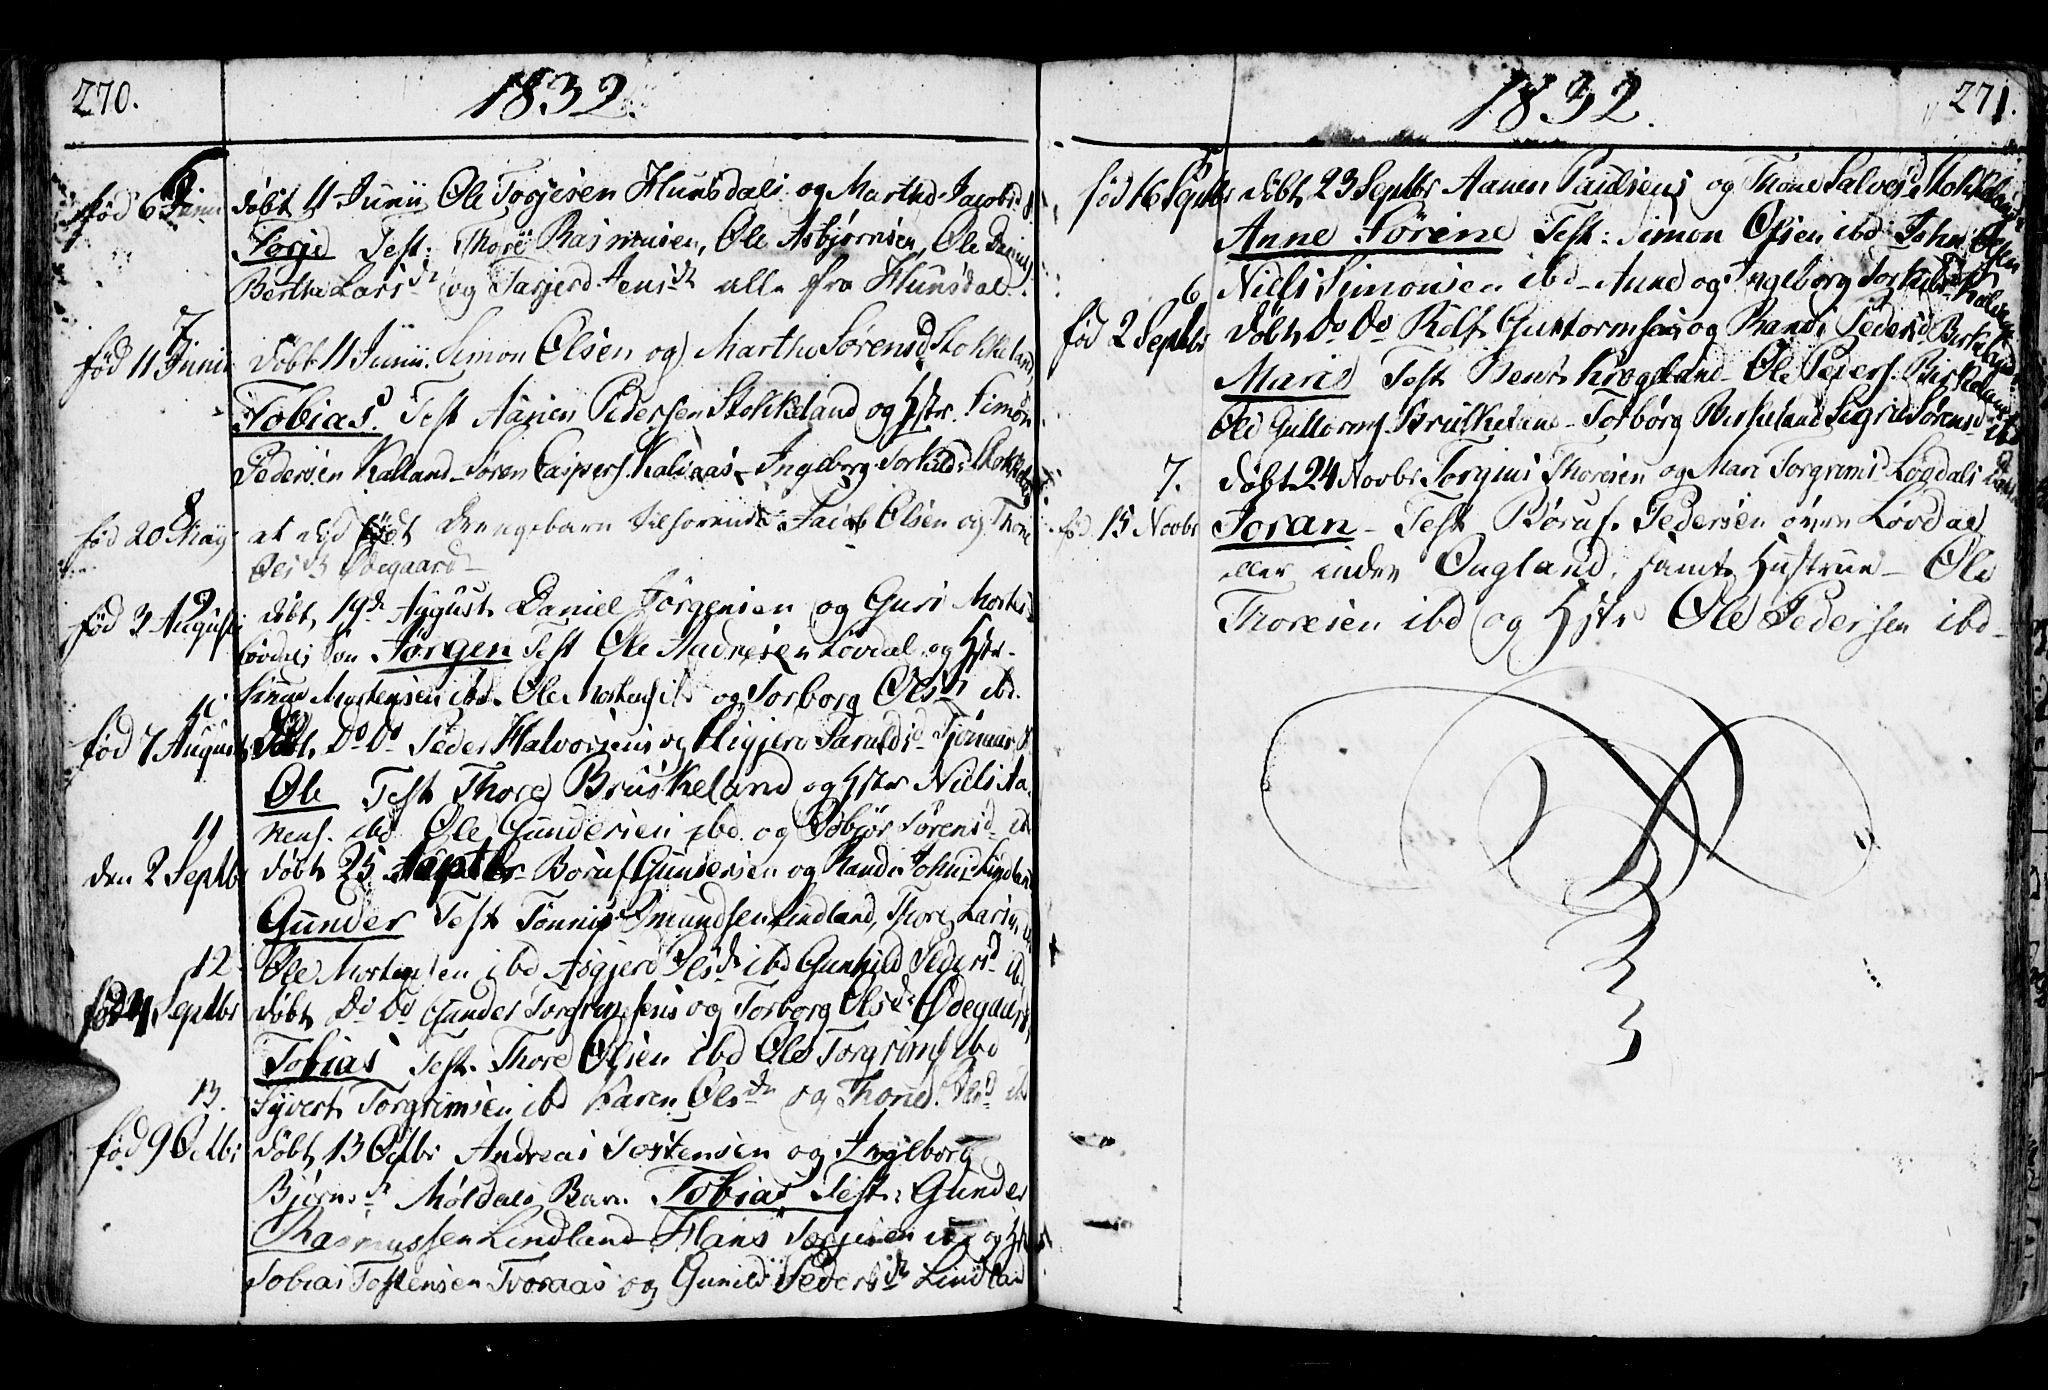 270.
1832.
6
fød 6 Junii døbt 11 Junii Ole Torjesen Hunsdals og Martha Jacobsd
Torje Test: Thore Rasmusen, Ole Asbjørnsen, Ole
Bertha Larsdr og Tarjerd Jensdr alle fra Hunsdal.
7
fød 11 Junii døbt 11 Junii. Simon Olsen og Marthe Sørensd Stokkeland
Tobias. Test Aanen Pedersen Stokkeland og Hstr. Simon
Pedersen Kalland - Søren Caspers. Kalsaas - Ingeborg Torkilds Stokkeland
8
fød 20 Maij at død født Drengebarn tilhørende Jacob Olsen og Thone
Olsdr Ødegaard -
9
fød 3 August døbt 19de August Daniel Jørgensen og Guri Mortsd
Løvdals Søn Jørgen Test Ole Andresen Løvdal og Hstr -
Mortensen ibd. Ole Mortens. ibd og Torborg Olsd ibd.
10
fød 7 August Døbt Do Do Peder Halvorsens og
Ole Test Thore Bruskeland og Hstr Niels Aa-
nens. ibd Ole Gundersen ibd og Sørensd ibd
11
den 2 Septbr døbt 25 Septbr - Børuf Gundersen og Randi Johnsd Lindland
Gunder Test Tønnis Omundsen Lindland, Thore Larsen
12
Ole Mortensen ibd Asgjerd Olsdr ibd Gunhild Pedersd ibd
fød 4 Septbr døbt Do Do Gunder Torgrimsens og Torborg Olsdr Ødegaard
Tobias Test. Thore Olsen ibd Ole Torgrims ibd
13.
Syvert Torgrimsen ibd Karen Olsdr og Thone Olsd ibd
fød 9 Octbr døbt 13 Octbr Andreas Tostensen og Ingeborg
Bjørnsdr Møldals Barn Tobias Test: Gunder
Rasmussen Lindland - Hans Torjesen ibd og Hstr
Tobias Tostensen Tvoraas og Gunild Pedersdr Lindland
1832.
271.
fød 16 Septbr døbt 23 Septbr Aanen Paulsens og Thone Salvesd Stokkelands
Anne Sørine Test: Simon Olsen ibd John Olsen
6
Niels Simonsen ibd - Anne og Ingeborg Torkilsd
fød 2 Septbr døbt Do Do Rolf Guttormsens og Randi Pedersd Birkeland
Maris Test Bent Krogeland - Ole Peders. Birkeland
Ole Guttorms. Bruskeland - Torborg Birkeland Sigrid Sørensd ibd
7.
døbt 24 Novbr Torgius Thoresen og Mari Torgrimsd Løgdals
fød 15 Novbr Joran - Test Børuf. Pedersen øvre Løvdal
eller indre Øugland, samt Hustrue - Ole
Thoresen ibd og Hstr Ole Pedersen ibd -